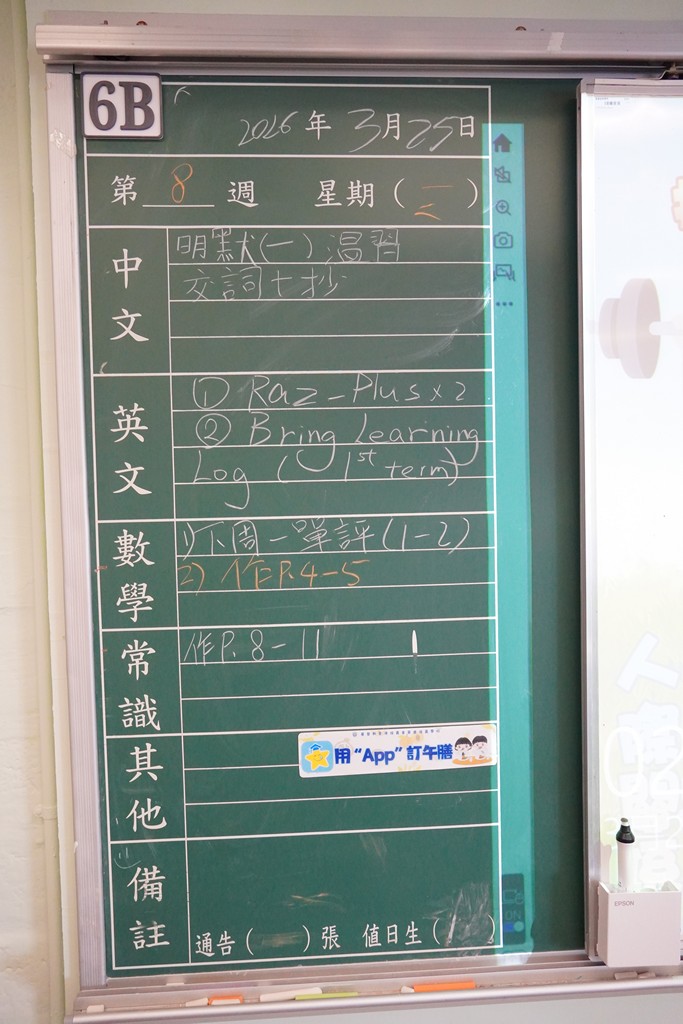 6B
2026年3月25日
第8週 星期(三)
中文
明默(一)溫習
交詞十抄
英文
① Raz-Plus x 2
② Bring Learning
Log (1st term)
數學
1)下周一單評(1-2)
2)作P.4-5
常識
作P.8-11
其他
用“App”訂午膳
備註
通告( )張 值日生( )
EPSON
ON